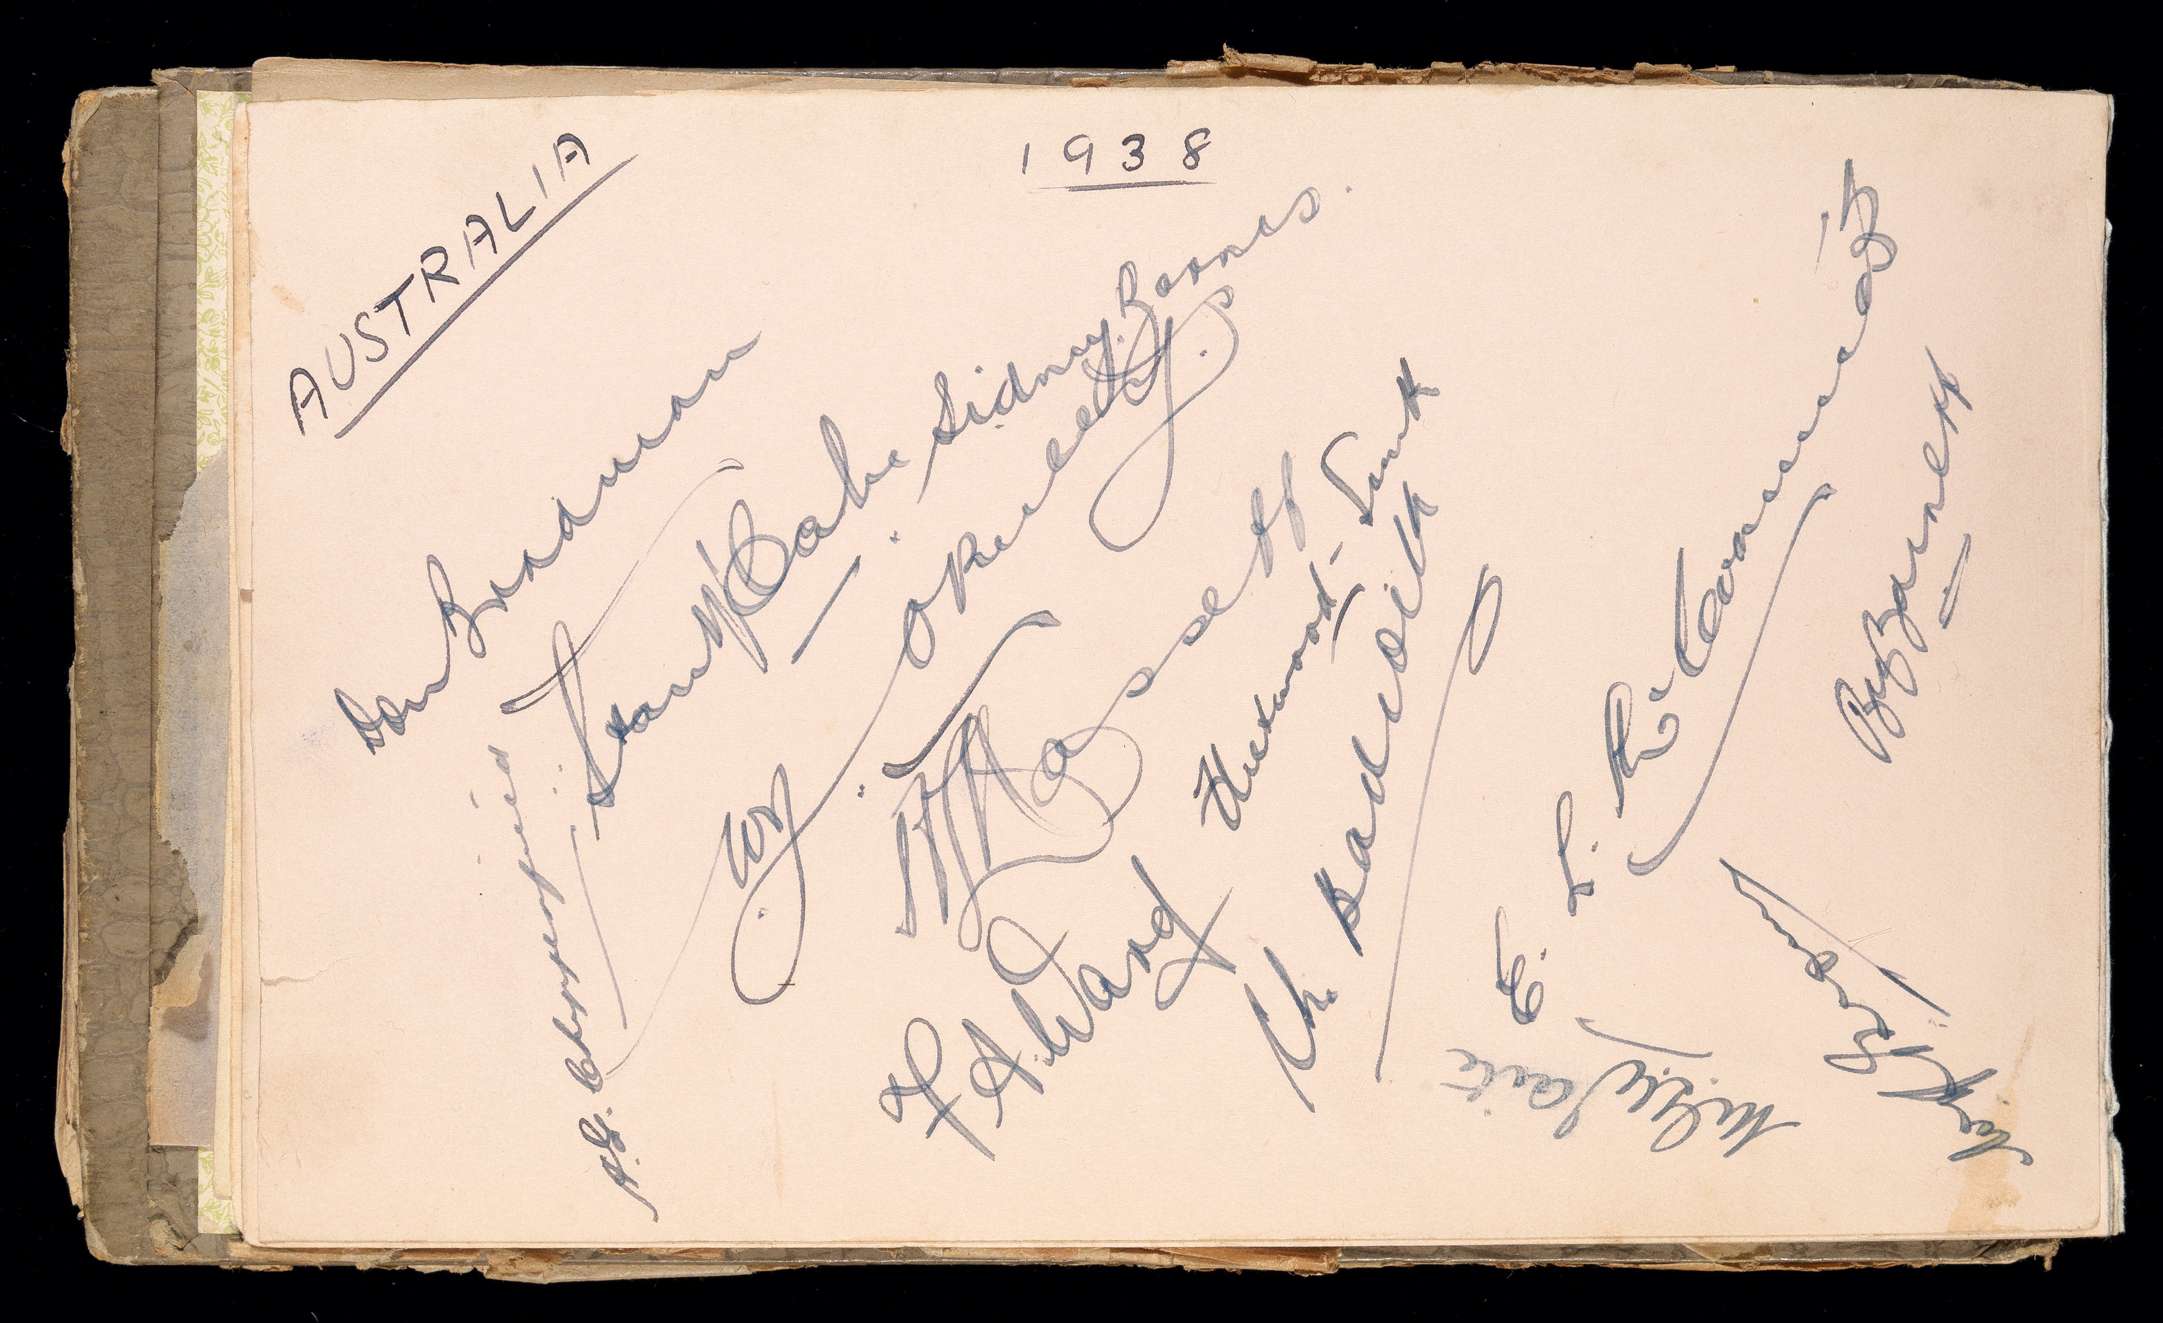 AUSTRALIA
1938
Don Bradman
Stan McCabe
Sidney. Barnes.
A.G. Chipperfield
W.J. O'Reilly
A L Hassett
F A. Ward
Fleetwood-Smith
Ch. Badcock
E. L. McCormick
M.G. Waite
B A Barnett